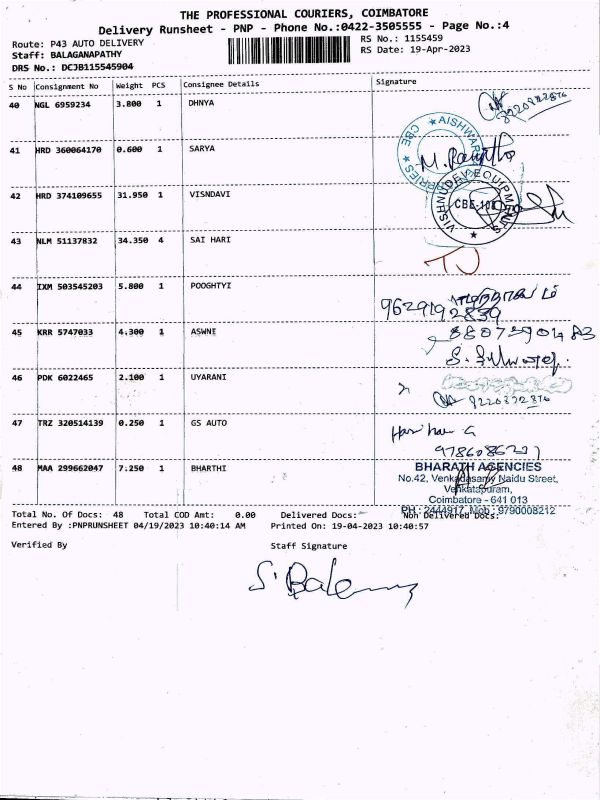 THE PROFESSIONAL COURIERS, COIMBATORE
Delivery Runsheet - PNP - Phone No.:0422-3505555 - Page No.:4
Route: P43 AUTO DELIVERY
RS No.: 1155459
Staff: BALAGANAPATHY
RS Date: 19-Apr-2023
DRS No.: DCJB115545904
S No Consignment No Weight PCS Consignee Details Signature
40 NGL 6959234 3.800 1 DHNYA
41 HRD 360064170 0.600 1 SARYA
CBE ★ AISHWAR
42 HRD 374109655 31.950 1 VISNDAVI
VISHNUDEV EQUIPMENTS
43 NLM 51137832 34.350 4 SAI HARI
TJ
44 IXM 503545203 5.800 1 POOGHTYI
9629192839
45 KRR 5747033 4.300 1 ASWNI
46 PDK 6022465 2.100 1 UYARANI
47 TRZ 320514139 0.250 1 GS AUTO
48 MAA 299662047 7.250 1 BHARTHI
BHARATH AGENCIES
No.42, Venkadasamy Naidu Street,
Venkatapuram,
Coimbatore - 641 013
PH : 2444917, Mob : 9790008212
Total No. Of Docs: 48 Total COD Amt: 0.00 Delivered Docs: Non Delivered Docs:
Entered By :PNPRUNSHEET 04/19/2023 10:40:14 AM Printed On: 19-04-2023 10:40:57
Verified By Staff Signature